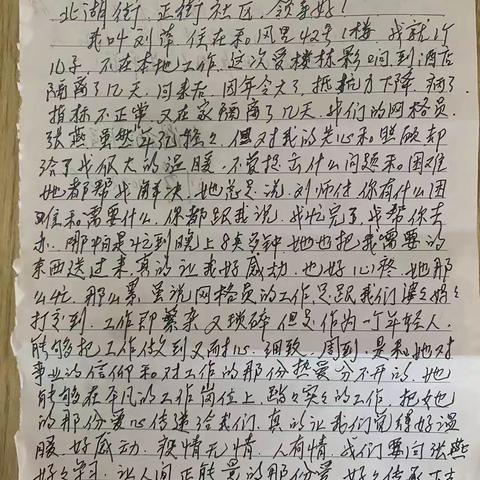 北湖街、正街社区，领导好！
我叫刘萍，住在和风里42号1楼，我就1个
儿子，不在本地工作，这次受楼栋影响到酒店
隔离了几天，回来后，因年令大了，抵抗力下降，病了，
指标不正常，又在家隔离了几天，我们的网格员，
张燕虽然年纪轻轻，但对我的关心和照顾却
给了我很大的温暖，不管提出什么问题和困难
她都帮我解决，她总是说，刘师付你有什么困
难和需要什么，你都跟我说，我忙完了，我帮你去
办，哪怕是忙到晚上8来多钟，她也把我需要的
东西送过来，真的让我好感动，也好心疼，她那
么忙，那么累，虽说网格员的工作总跟我们婆婆妈妈
打交到，工作即繁杂又琐碎，但是作为一个年轻人，
能够把工作做到又耐心、细致、周到，是和她对
事业的信仰和对工作的那份热爱分不开的，她
能够在平凡的工作岗位上，踏踏实实的工作，把她
的那份爱心传递给我们，真的让我们觉得好温
暖，好感动，疫情无情，人有情，我们要向张燕
好好学习，让人间正能量的那份爱，好好传承下去